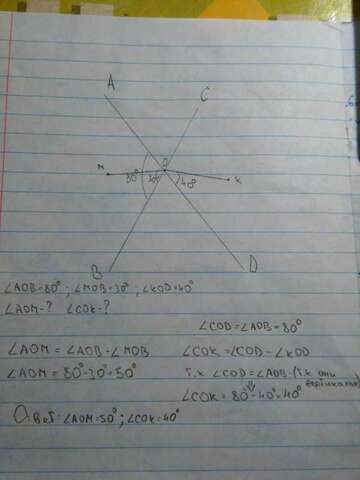 A
C
O
M
80°
30°
40°
K
B
D
∠AOB=80° ; ∠MOB=30° ; ∠KOD=40°
∠AOM-? ∠COK-?
∠COD=∠AOB=80°
∠AOM = ∠AOB-∠MOB
∠COK=∠COD-∠KOD
∠AOM=80°-30°=50°
т.к ∠COD=∠AOB-(т.к они
вертикальные)
∠COK=80°-40°=40°
Ответ:∠AOM=50° ; ∠COK=40°